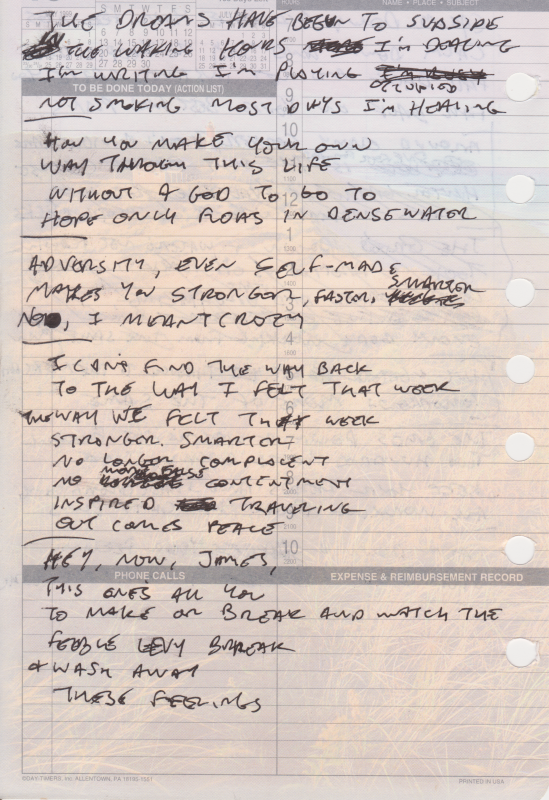 HOUR NAME • PLACE • SUBJECT
THE DREAMS HAVE BEGUN TO SUBSIDE
IN THE WAKING HOURS I'M DEALING
I'M WRITING I'M PLAYING OCCUPIED
TO BE DONE TODAY (ACTION LIST)
NOT SMOKING MOST DAYS I'M HEALING
HOW YOU MAKE YOUR OWN
WAY THROUGH THIS LIFE
WITHOUT A GOD TO GO TO
HOPE ONLY FLOATS IN DENSE WATER
ADVERSITY, EVEN SELF-MADE
MAKES YOU STRONGER, FASTER, SMARTER
NOW, I MEANT CRAZY
I CAN'T FIND THE WAY BACK
TO THE WAY I FELT THAT WEEK
THE WAY WE FELT THAT WEEK
STRONGER. SMARTER
NO LONGER COMPLACENT
NO MORE FALSE CONTENTMENT
INSPIRED TRAVELING
OUT COMES PEACE
HEY, NOW, JAMES,
PHONE CALLS EXPENSE & REIMBURSEMENT RECORD
THIS ONE'S ALL YOU
TO MAKE OR BREAK AND WATCH THE
FEEBLE LEVY BREAK
& WASH AWAY
THESE FEELINGS
©DAY-TIMERS, Inc. ALLENTOWN, PA 18195-1551 PRINTED IN USA